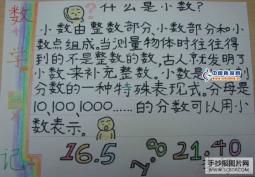 什么是小数?
小数由整数部分、小数部分和小
数点组成。当测量物体时往往得
到的不是整数的数，古人就发明了
小数来补充整数。小数是
分数的一种特殊表现式。分母是
10,100,1000……的分数可以用小
数表示。
数学
记
16.5
21.40
手抄报图片网